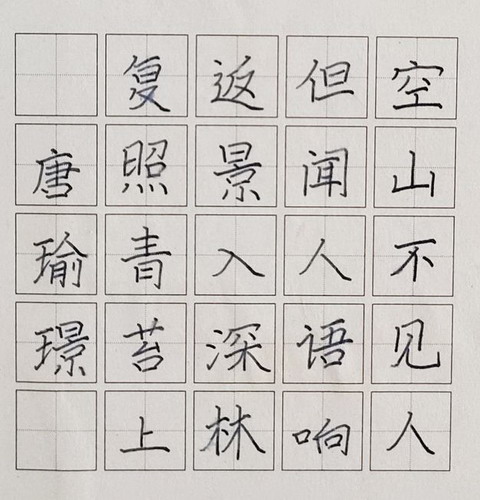 空山不见人
但闻人语响
返景入深林
复照青苔上
唐瑜璟